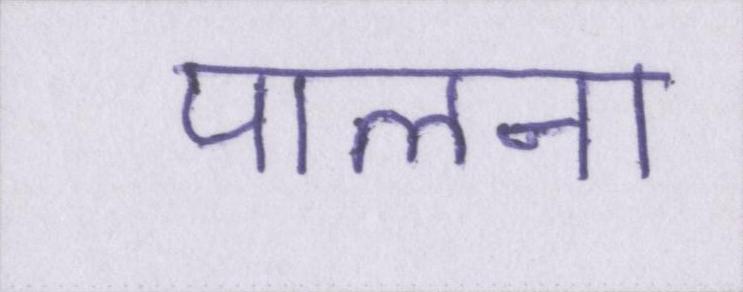 पालना